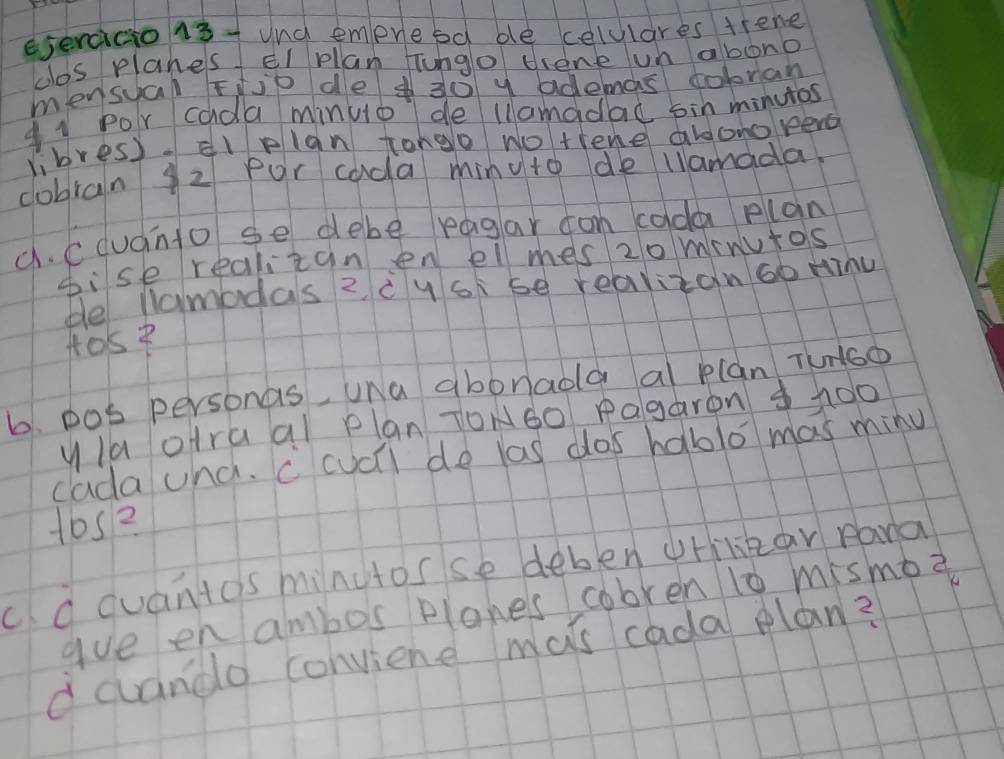 Ejercicio 13 - una empresa de celulares tiene
dos planes. El plan Tungo tiene un abono
mensual Fijo de $ 30 y ademas cobran
$1 por cada minuto de llamadas sin minutos
libres). El plan tongo no tiene abono pero
cobran $2 por cada minuto de llamada.
a. ¿cuanto se debe pagar con cada plan
si se realizan en el mes 20 minutos
de llamadas?. ¿y si se realizan 60 minu
tos?
b. Dos personas, una abonada al plan TUNGO
y la otra al plan TONGO pagaron $ 100
cada una. ¿cuál de las dos habló mas minu
tos?
c. ¿cuántos minutos se deben utilizar para
que en ambos planes cobren lo mismo?
¿cuándo conviene más cada plan?